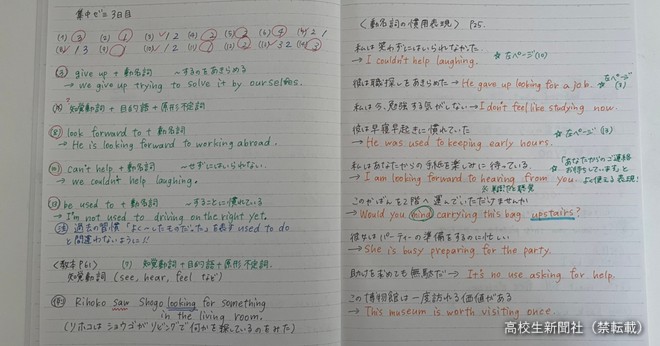 集中ゼミ 3日目
(1) 3 (2) 1 (3) ✓12 (4) 2 (5) 3 (6) 4 (7) ✓21
(8) ✓13 (9) (10) ✓12 (11) ✓1 (12) 2 (13) ✓32 (14) 3
(3) give up + 動名詞 ～するのをあきらめる
→ we give up trying to solve it by ourselves.
(7) 知覚動詞 + 目的語 + 原形不定詞
(8) look forward to + 動名詞
→ He is looking forward to working abroad.
(10) can't help + 動名詞 ～せずにはいられない。
→ we couldn't help laughing.
(13) be used to + 動名詞 ～することに慣れている
→ I'm not used to driving on the right yet.
注 過去の習慣「よく～したものだった」を表す used to do
と間違わないように!!
〈教本 P61〉 (7) 知覚動詞+目的語+原形不定詞.
知覚動詞 (see, hear, feel など)
例) Rihoko saw Shogo looking for something
in the living room.
(リホコはショウゴがリビングで何かを探しているのをみた)
〈動名詞の慣用表現〉 P25.
私は笑わずにはいられなかった.
→ I couldn't help laughing. ☆ 左ページ(10)
彼は職探しをあきらめた → He gave up looking for a job. ☆左ページ(3)
私は今、勉強する気がしない → I don't feel like studying now.
彼は早寝早起きに慣れていた ☆ 左ページ(13)
→ He was used to keeping early hours.
私はあなたからの手紙を楽しみに待っている. ☆「あなたからのご連絡お待ちしています」と
→ I am looking forward to hearing from you. よく使える表現!
このかばんを2階へ運んでいただけませんか
→ Would you mind carrying this bag upstairs?
彼女はパーティーの準備をするのに忙しい
→ She is busy preparing for the party.
助けを求めても無駄だ → It's no use asking for help.
この博物館は一度訪れる価値がある
→ This museum is worth visiting once.
高校生新聞社（禁転載）